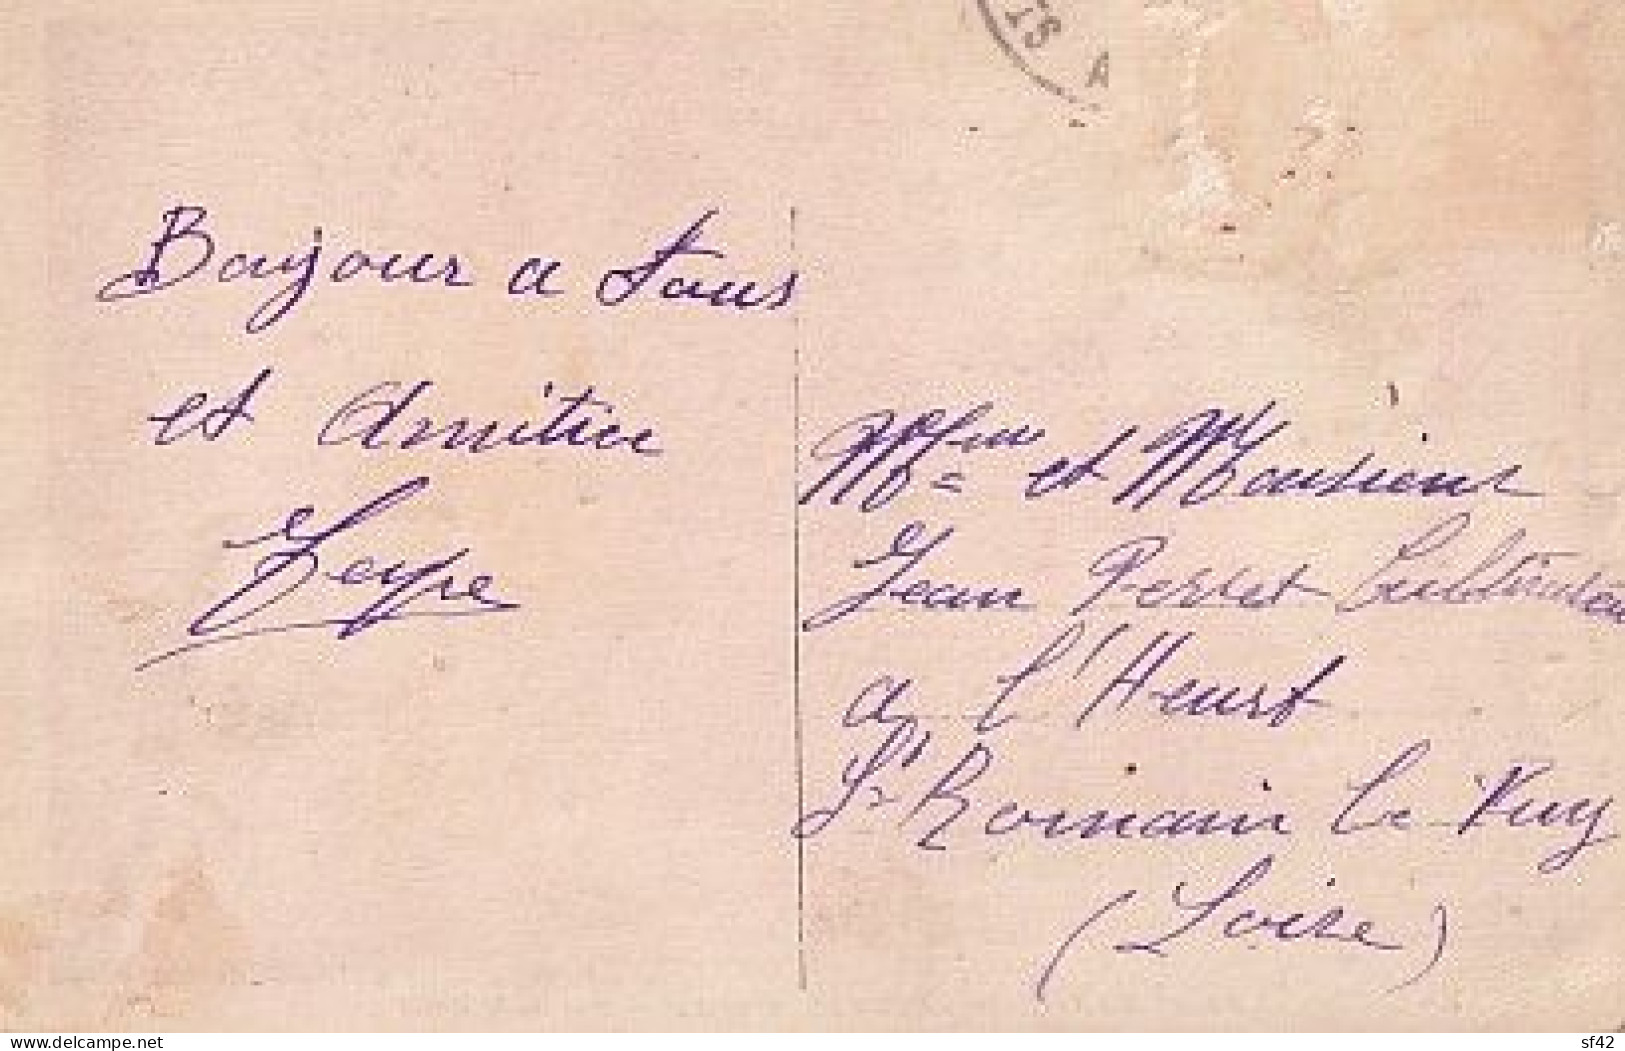 Bonjour a tous
et Amitiée
Mme et Monsieur
Jean Perret Cultivateu
a l'Heurt
St Romain le Puy
(Loire)
www.delcampe.net
sf42